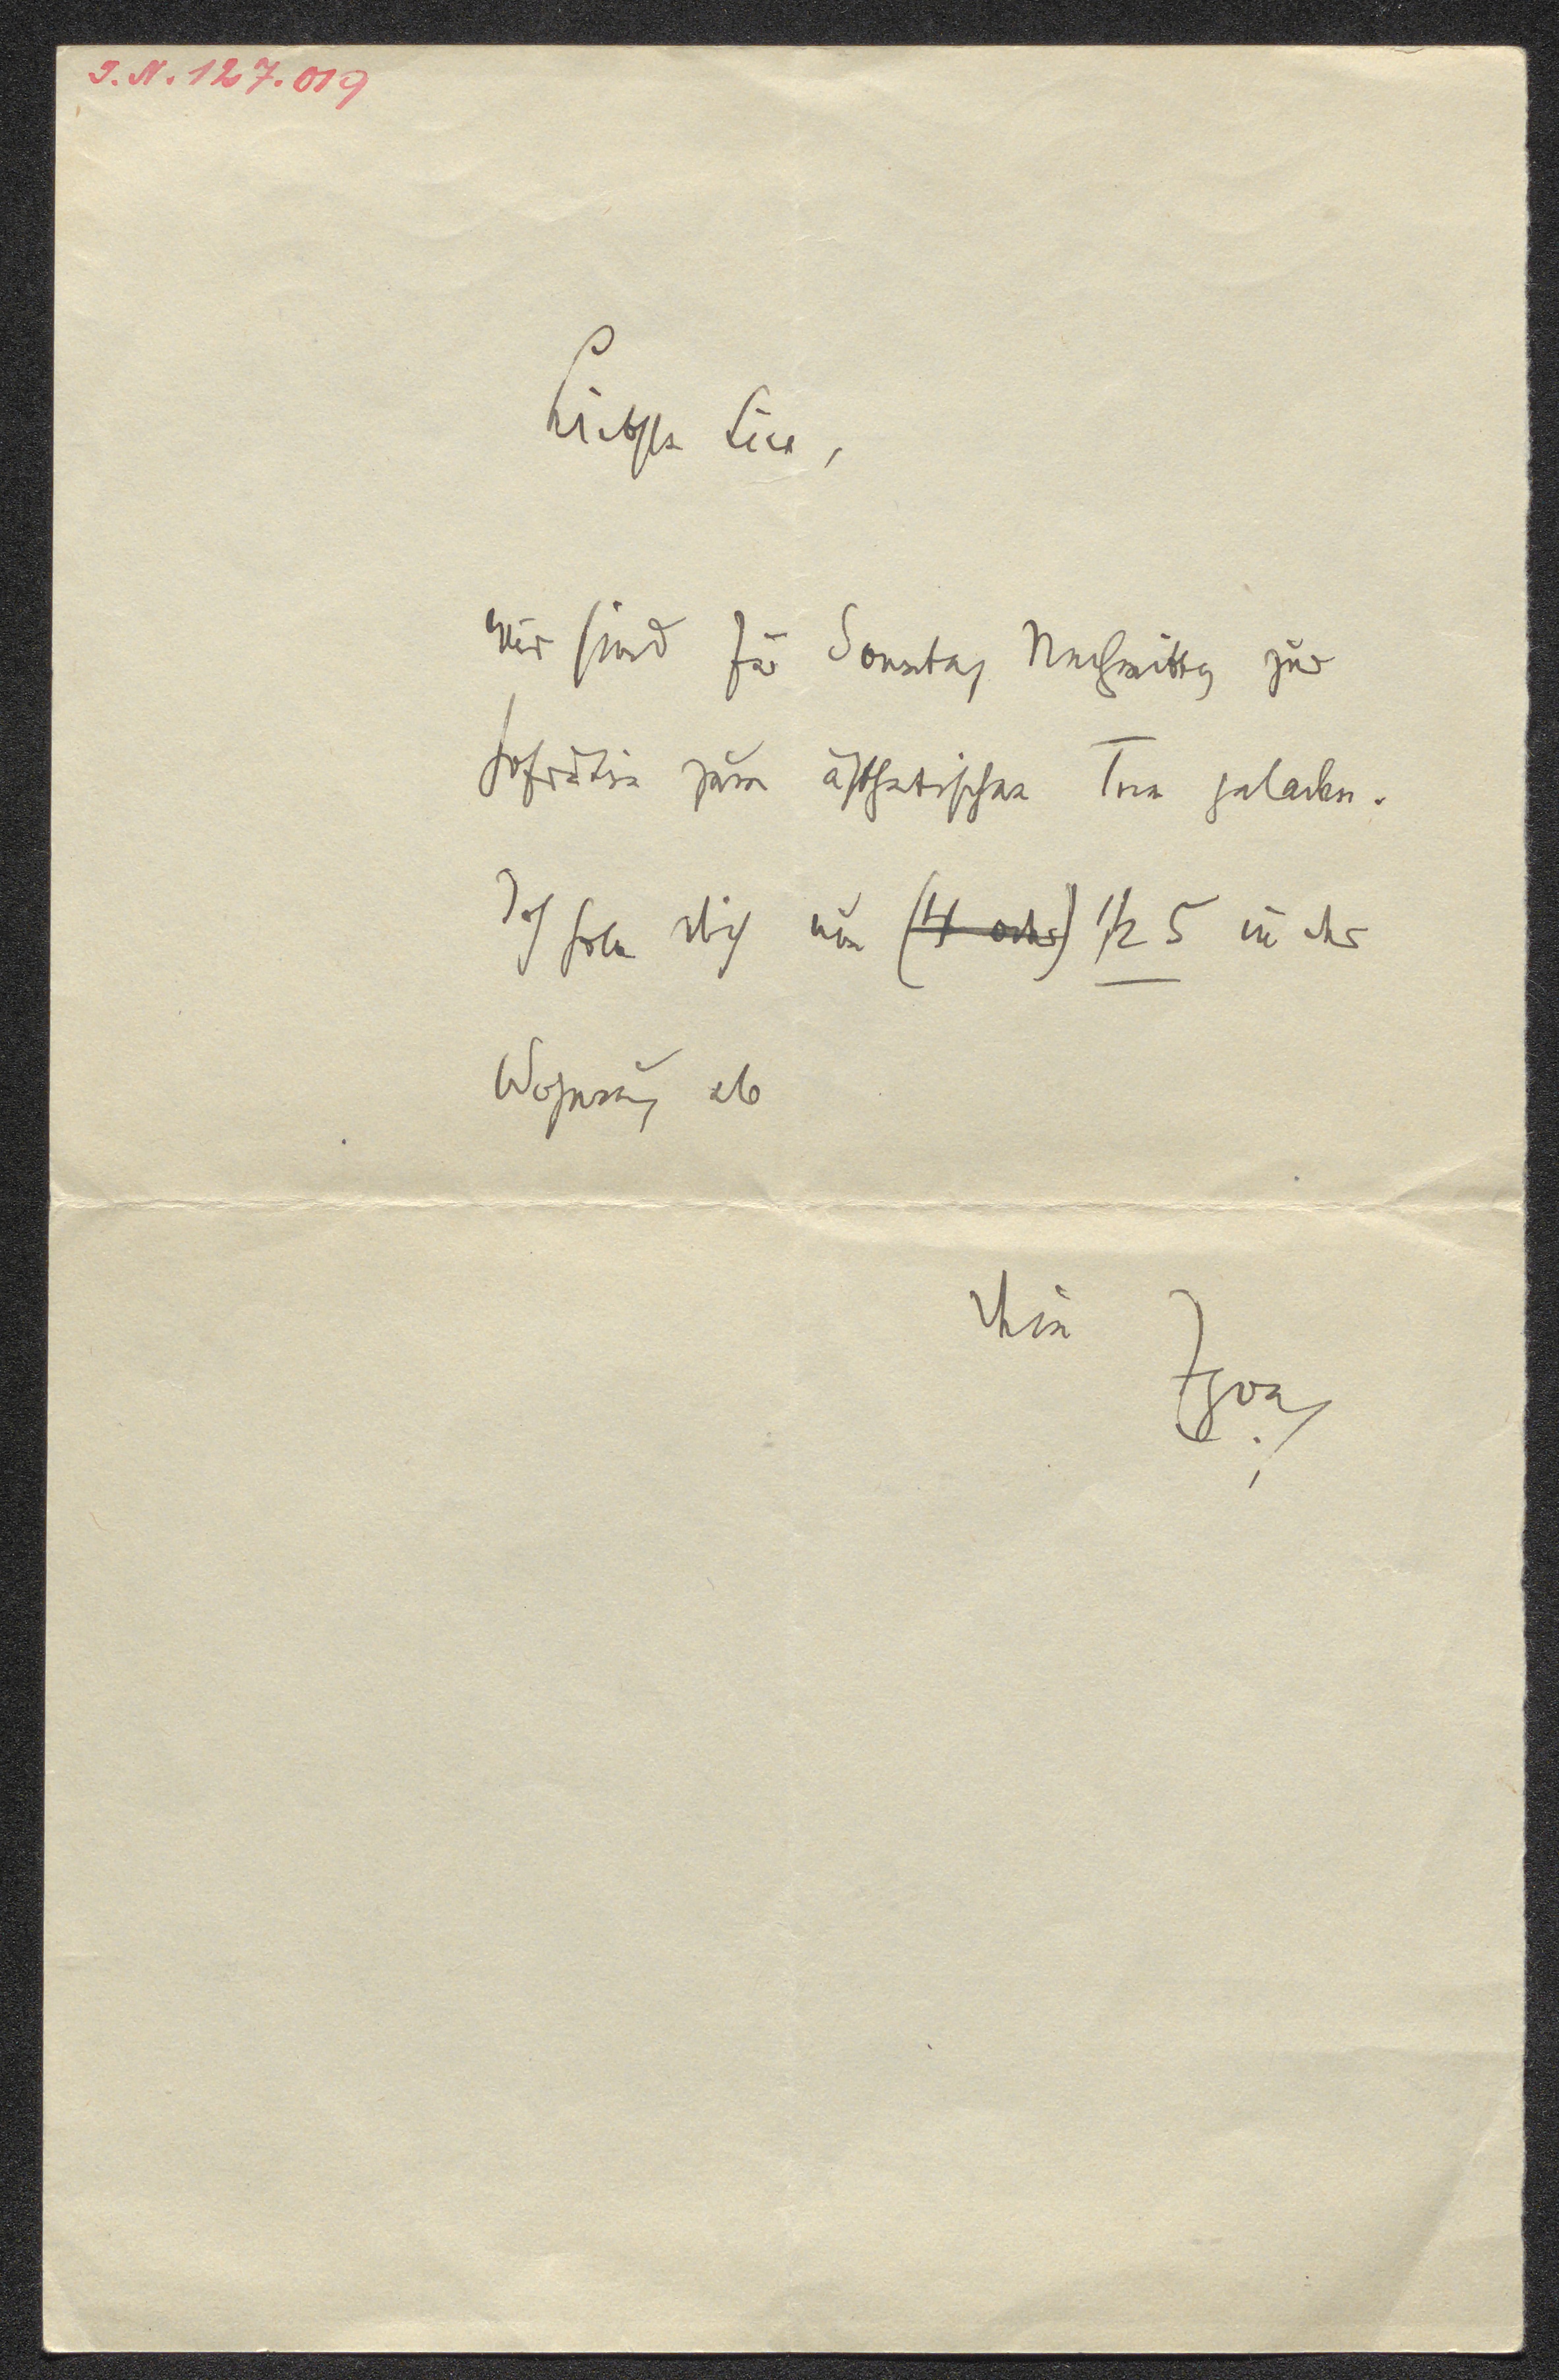 J.N. 127.019
Liebste Lea,
wir sind für Sonntag Nachmittag zur
Hofrätin zum ästhetischen Tee geladen.
Ich hole dich um (4 oder) 1/2 5 in der
Wohnung ab
Dein